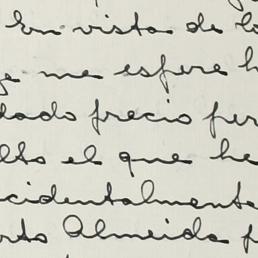 En vista de lo
ge me espere h
dado precio per
lto el que he
ccidentalmente
rto Almeida p